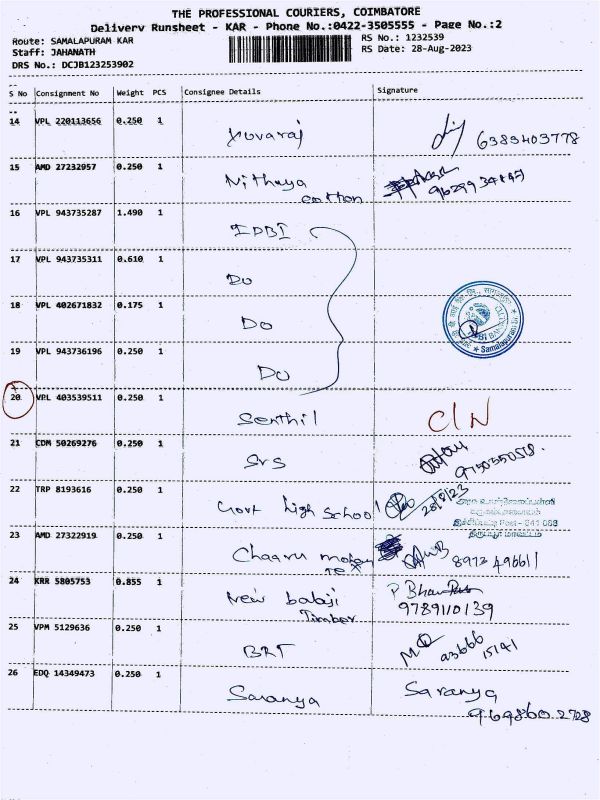 THE PROFESSIONAL COURIERS, COIMBATORE
Delivery Runsheet - KAR - Phone No.:0422-3505555 - Page No.:2
Route: SAMALAPURAM KAR
RS No.: 1232539
Staff: JAHANATH
RS Date: 28-Aug-2023
DRS No.: DCJB123253902
S No Consignment No Weight PCS Consignee Details Signature
14 VPL 220113656 0.250 1
Yuvaraj 6383403778
15 AMD 27232957 0.250 1
Nithyya
cotton
16 VPL 943735287 1.490 1
IDBI
17 VPL 943735311 0.610 1
Do
18 VPL 402671832 0.175 1
Do
19 VPL 943736196 0.250 1
Do
20 VPL 403539511 0.250 1
Senthil C/N
21 CDM 50269276 0.250 1
SrS
22 TRP 8193616 0.250 1
Govt high School 28/8/23
23 AMD 27322919 0.250 1
Chaaru mohan
Tex
24 KRR 5805753 0.855 1
New balaji
Timber 9789110139
25 VPM 5129636 0.250 1
BRT
26 EDQ 14349473 0.250 1
Saranya Saranya